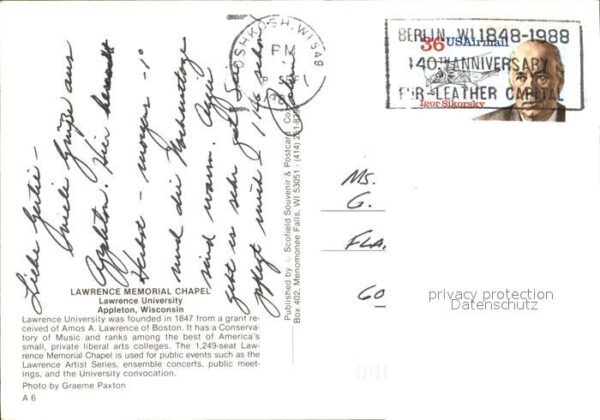 Liebe Gertie –
Viele Grüße aus
Appleton. Hier
Herbst – morgens -1°
und die Herbsttage
sind warm.
geht es sehr gut. Sie
pflegt mich
OSHKOSH, WI 549
PM
BERLIN, WI 1848-1988
140TH ANNIVERSARY
FUR-LEATHER CAPITAL
36 USAirmail
Igor Sikorsky
MS.
G.
FLA
GO
privacy protection
Datenschutz
Published by Scofield Souvenir & Postcard Co.
Box 402, Menomonee Falls, WI 53051 · (414) 251-
LAWRENCE MEMORIAL CHAPEL
Lawrence University
Appleton, Wisconsin
Lawrence University was founded in 1847 from a grant re-
ceived of Amos A. Lawrence of Boston. It has a Conserva-
tory of Music and ranks among the best of America's
small, private liberal arts colleges. The 1,249-seat Law-
rence Memorial Chapel is used for public events such as the
Lawrence Artist Series, ensemble concerts, public meet-
ings, and the University convocation.
Photo by Graeme Paxton
A 6